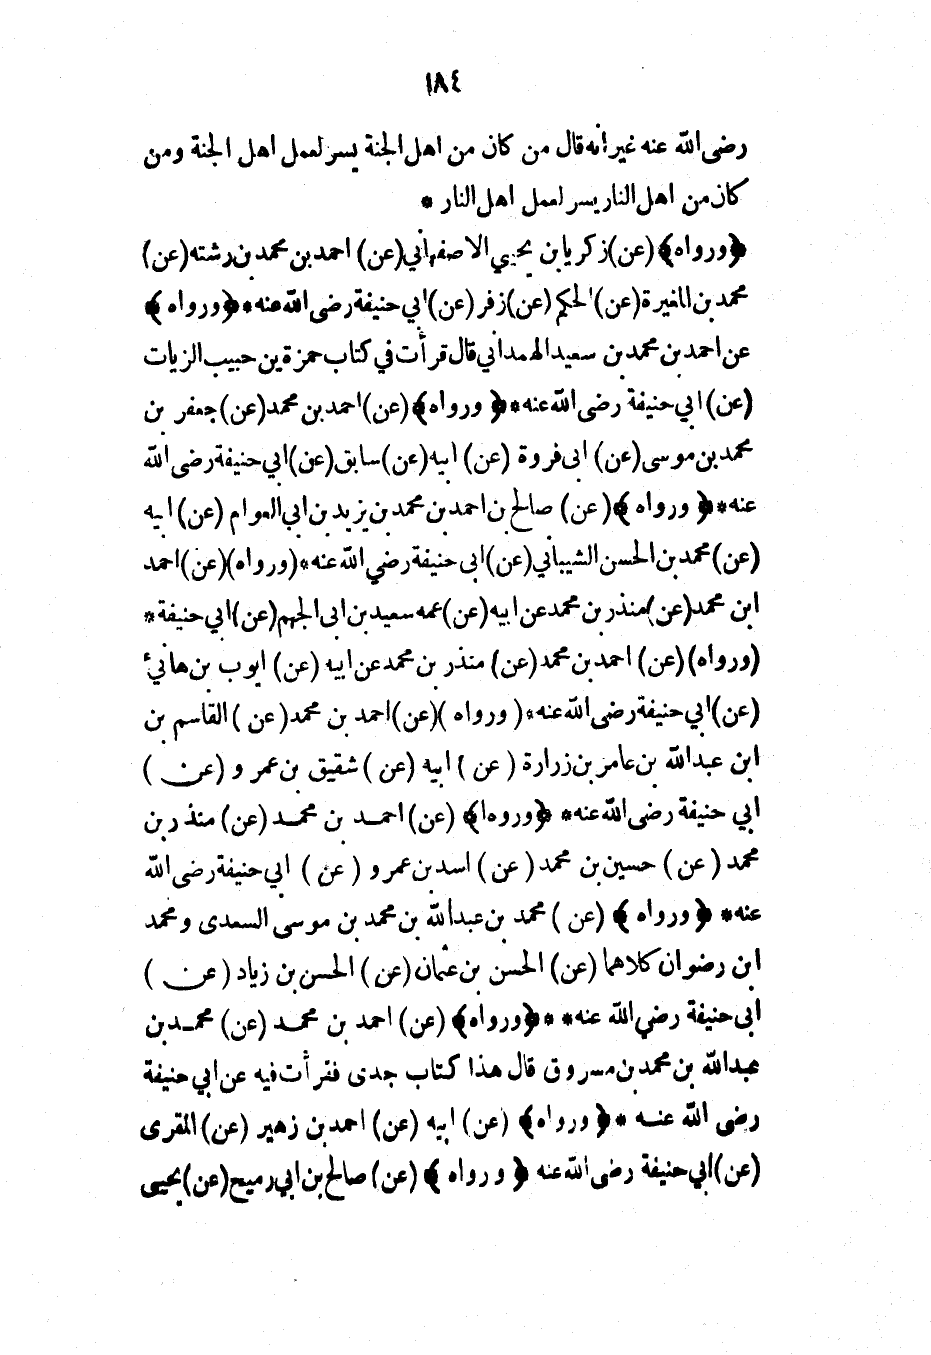 ١٨٤
رضى الله عنه غير انه قال من كان من اهل الجنة يسر لعمل اهل الجنة ومن
كان من اهل النار يسر لعمل اهل النار *
﴿ورواه﴾ (عن) زكريا بن يحيي الاصفهاني (عن) احمد بن محمد بن رشته (عن)
محمد بن المغيرة (عن) الحكم (عن) زفر (عن) ابي حنيفة رضى الله عنه * ﴿ورواه﴾
عن احمد بن محمد بن سعيد الهمداني قال قرأت في كتاب حمزة بن حبيب الزيات
(عن) ابي حنيفة رضى الله عنه * ﴿ ورواه﴾ (عن) احمد بن محمد (عن) جعفر بن
محمد بن موسى (عن) ابى فروة (عن) ابيه (عن) سابق (عن) ابي حنيفة رضى الله
عنه * ﴿ ورواه ﴾ (عن) صالح بن احمد بن محمد بن يزيد بن ابي العوام (عن) ابيه
(عن) محمد بن الحسن الشيباني (عن) ابى حنيفة رضي الله عنه * (ورواه) (عن) احمد
ابن محمد (عن) منذر بن محمد عن ابيه (عن) عمه سعيد بن ابى الجهم (عن) ابي حنيفة *
(ورواه) (عن) احمد بن محمد (عن) منذر بن محمد عن ابيه (عن) ايوب بن هانيء
(عن) ابي حنيفة رضى الله عنه * ( ورواه ) (عن) احمد بن محمد (عن) القاسم بن
ابن عبد الله بن عامر بن زرارة (عن) ابيه (عن) شقيق بن عمرو (عن)
ابي حنيفة رضى الله عنه * ﴿وروه ا﴾ (عن) احمد بن محمد (عن) منذر بن
محمد (عن) حسين بن محمد (عن) اسد بن عمرو (عن) ابي حنيفة رضى الله
عنه * ﴿ ورواه ﴾ (عن) محمد بن عبد الله بن محمد بن موسى السعدى ومحمد
ابن رضوان كلاهما (عن) الحسن بن عثمان (عن) الحسن بن زياد (عن)
ابى حنيفة رضي الله عنه * * ﴿ورواه﴾ (عن) احمد بن محمد (عن) محمد بن
عبد الله بن محمد بن مسروق قال هذا كتاب جدى فقرأت فيه عن ابي حنيفة
رضى الله عنه * ﴿ ورواه﴾ (عن) ابيه (عن) احمد بن زهير (عن) المقرى
(عن) ابي حنيفة رضى الله عنه ﴿ ورواه ﴾ (عن) صالح بن ابي رميح (عن) يحيى